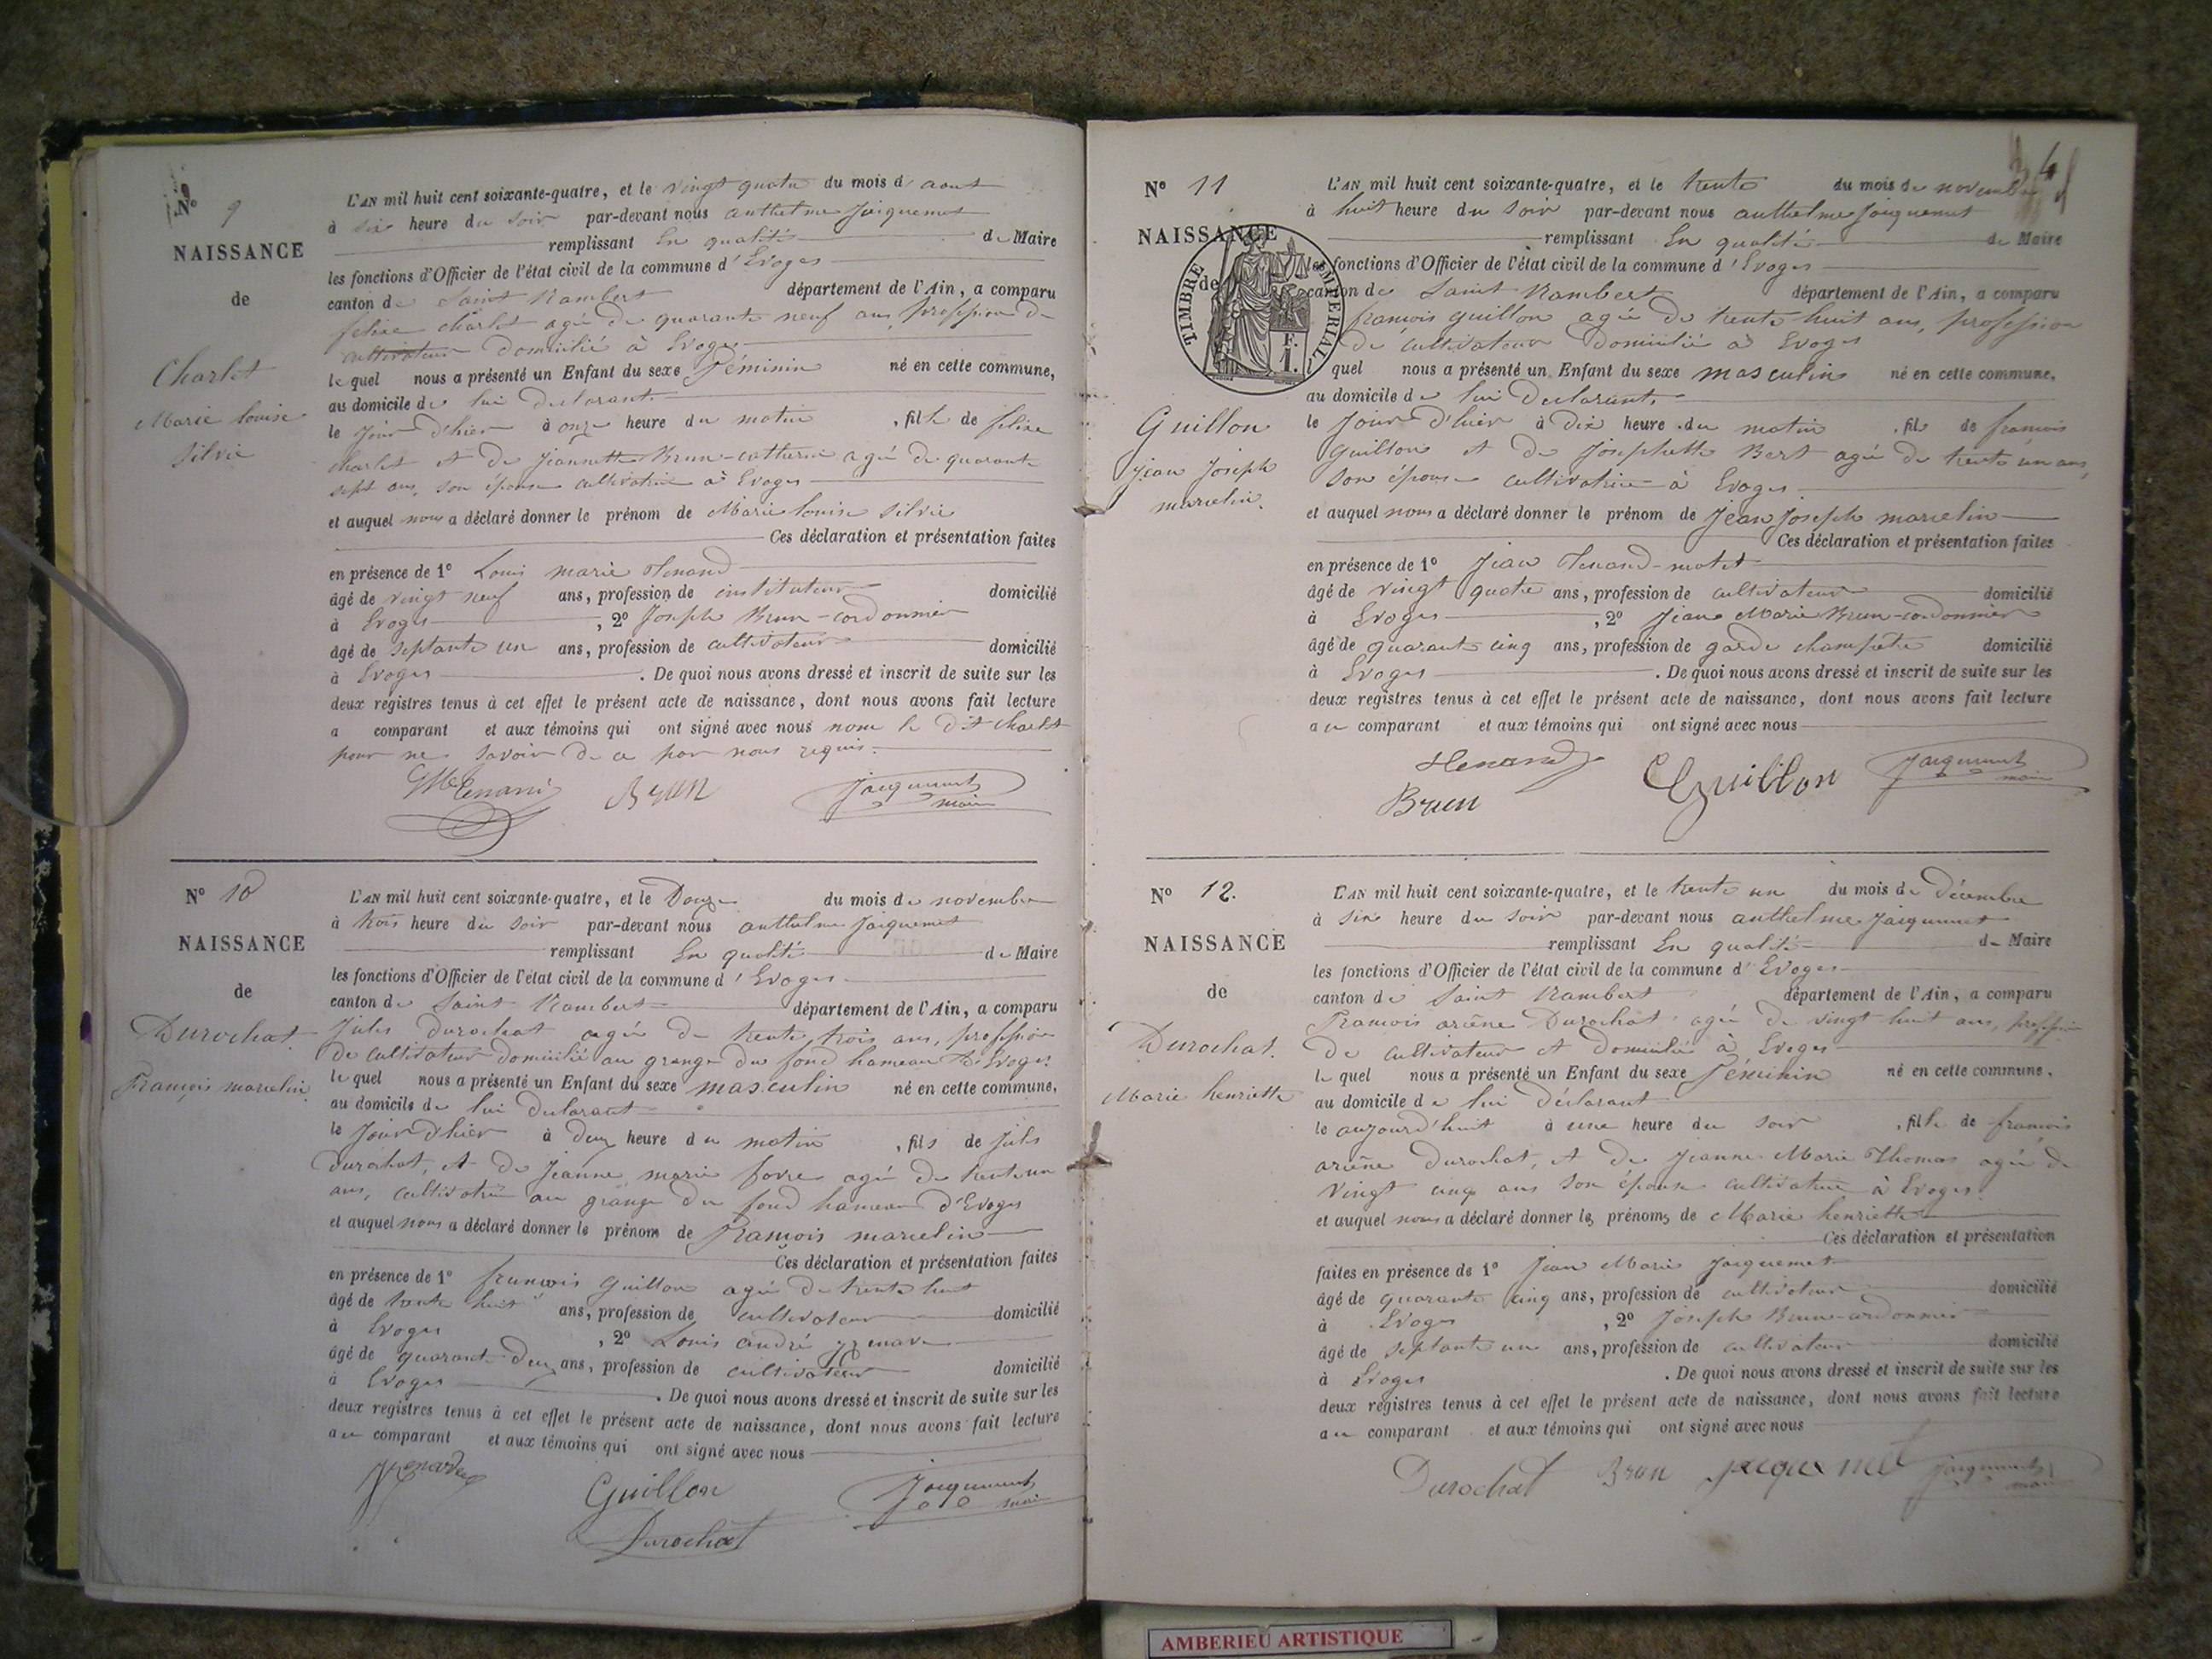 N° 9
NAISSANCE
de
Charlet
Marie Louise
Silvie
L'AN mil huit cent soixante-quatre, et le vingt quatre du mois d aout
à six heure du soir par-devant nous anthelme Jacquemet
remplissant En qualité de Maire
les fonctions d'Officier de l'état civil de la commune d'Evoges
canton de Saint Rambert département de l'Ain, a comparu
felixe charlet agé de quarante neuf ans, profession de
cultivateur domicilié à Evoges
lequel nous a présenté un Enfant du sexe féminin né en cette commune,
au domicile de lui declarant
le jour d'hier à onze heure du matin , fille de felixe
charlet et de Jeannette Brun-catherin agée de quarante
sept ans, son épouse cultivatrice à Evoges
et auquel nous a déclaré donner le prénom de Marie Louise Silvie
Ces déclaration et présentation faites
en présence de 1° Louis marie Tenand
âgé de vingt neuf ans, profession de instituteur domicilié
à Evoges , 2° Joseph Brun-cordonnier
âgé de septante un ans, profession de cultivateur domicilié
à Evoges . De quoi nous avons dressé et inscrit de suite sur les
deux registres tenus à cet effet le présent acte de naissance, dont nous avons fait lecture
a comparant et aux témoins qui ont signé avec nous non le dit charlet
pour ne savoir de ce par nous requis.
Brun Jacquemet
maire
N° 10
NAISSANCE
de
Durochat
François marcelin
L'AN mil huit cent soixante-quatre, et le Douze du mois de novembre
à trois heure du soir par-devant nous anthelme Jacquemet
remplissant En qualité de Maire
les fonctions d'Officier de l'état civil de la commune d'Evoges
canton de Saint Rambert département de l'Ain, a comparu
Jules durochat agée de trente trois ans, profession
de cultivateur domicilié au grange du fond hameau d'Evoges
lequel nous a présenté un Enfant du sexe masculin né en cette commune,
au domicile de lui declarant
le jour d'hier à deux heure du matin , fils de Jules
Durochat, et de Jeanne marie favre agée de trente un
ans, cultivatrice au grange du fond hameau d'Evoges
et auquel nous a déclaré donner le prénom de François marcelin
Ces déclaration et présentation faites
en présence de 1° françois Guillon agée de trente huit
âgé de trente huit ans, profession de cultivateur domicilié
à Evoges , 2° Louis andré
âgé de quarante deux ans, profession de cultivateur domicilié
à Evoges . De quoi nous avons dressé et inscrit de suite sur les
deux registres tenus à cet effet le présent acte de naissance, dont nous avons fait lecture
au comparant et aux témoins qui ont signé avec nous
Guillon Jacquemet
maire
Durochat
4
N° 11
NAISSANCE
de
TIMBRE IMPERIAL
1 F.
Guillon
Jean Joseph
marcelin.
L'AN mil huit cent soixante-quatre, et le trente du mois de novembre
à huit heure du soir par-devant nous anthelme Jacquemet
remplissant En qualité de Maire
les fonctions d'Officier de l'état civil de la commune d'Evoges
canton de Saint Rambert département de l'Ain, a comparu
françois guillon agée de trente huit ans, profession
de cultivateur domicilié à Evoges
lequel nous a présenté un Enfant du sexe masculin né en cette commune,
au domicile de lui Declarant
le Jour d'hier à dix heure du matin , fils de françois
Guillon et de Josephette Bert agée de trente un ans,
son épouse cultivatrice à Evoges
et auquel nous a déclaré donner le prénom de Jean Joseph marcelin
Ces déclaration et présentation faites
en présence de 1° Jean Tenand-motet
âgé de vingt quatre ans, profession de cultivateur domicilié
à Evoges , 2° Jean Marie Brun-cordonnier
âgé de quarante cinq ans, profession de garde champêtre domicilié
à Evoges . De quoi nous avons dressé et inscrit de suite sur les
deux registres tenus à cet effet le présent acte de naissance, dont nous avons fait lecture
au comparant et aux témoins qui ont signé avec nous
Tenand Guillon Jacquemet
maire
Brun
N° 12.
NAISSANCE
de
Durochat.
Marie henriette
L'AN mil huit cent soixante-quatre, et le trente un du mois de Décembre
à six heure du soir par-devant nous anthelme Jacquemet
remplissant En qualité de Maire
les fonctions d'Officier de l'état civil de la commune d'Evoges
canton de Saint Rambert département de l'Ain, a comparu
François arcène Durochat agée de vingt huit ans, profession
de cultivateur et domicilié à Evoges
lequel nous a présenté un Enfant du sexe féminin né en cette commune,
au domicile de lui déclarant
le aujourd'huit à une heure du soir , fille de françois
arcène Durochat, et de Jeanne Marie Thomas agée de
vingt cinq ans son épouse cultivatrice à Evoges.
et auquel nous a déclaré donner les prénoms de Marie henriette
Ces déclaration et présentation
faites en présence de 1° Jean Marie Jacquemet
âgé de quarante cinq ans, profession de cultivateur domicilié
à Evoges , 2° Joseph Brun-cordonnier
âgé de septante un ans, profession de cultivateur domicilié
à Evoges . De quoi nous avons dressé et inscrit de suite sur les
deux registres tenus à cet effet le présent acte de naissance, dont nous avons fait lecture
au comparant et aux témoins qui ont signé avec nous
Durochat Brun Jacquemet Jacquemet
maire
AMBERIEU ARTISTIQUE